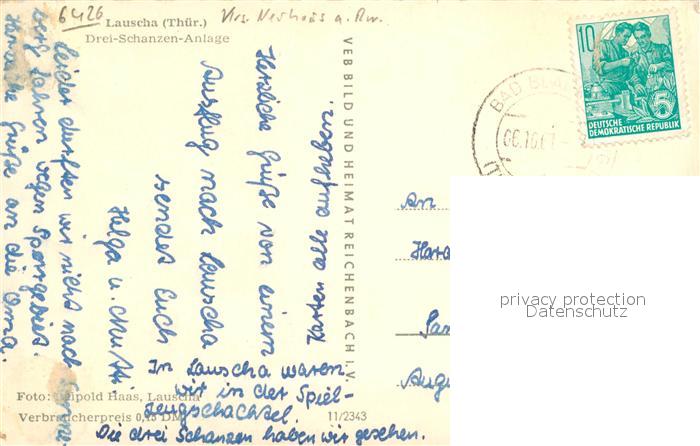 6426
Lauscha (Thür.)
Krs. Neuhaus a. Rw.
Drei-Schanzen-Anlage
VEB BILD UND HEIMAT REICHENBACH i. V.
10
5
DEUTSCHE
DEMOKRATISCHE REPUBLIK
BAD BLA
06.10.61
Karten alle aufheben.
Herzliche Grüße von einem
Ausflug nach Lauscha
sendet Euch
Helga u. Mutti.
Leider durften wir nicht nach
fahren wegen Sperrgebiet.
Herzliche Grüße an die Oma.
In Lauscha waren
wir in der Spiel-
zeugschachtel.
Die drei Schanzen haben wir gesehen.
An
Hara
San
Augu
privacy protection
Datenschutz
Foto: Leipold Haas, Lauscha
Verbraucherpreis 0,15 DM
11/2343